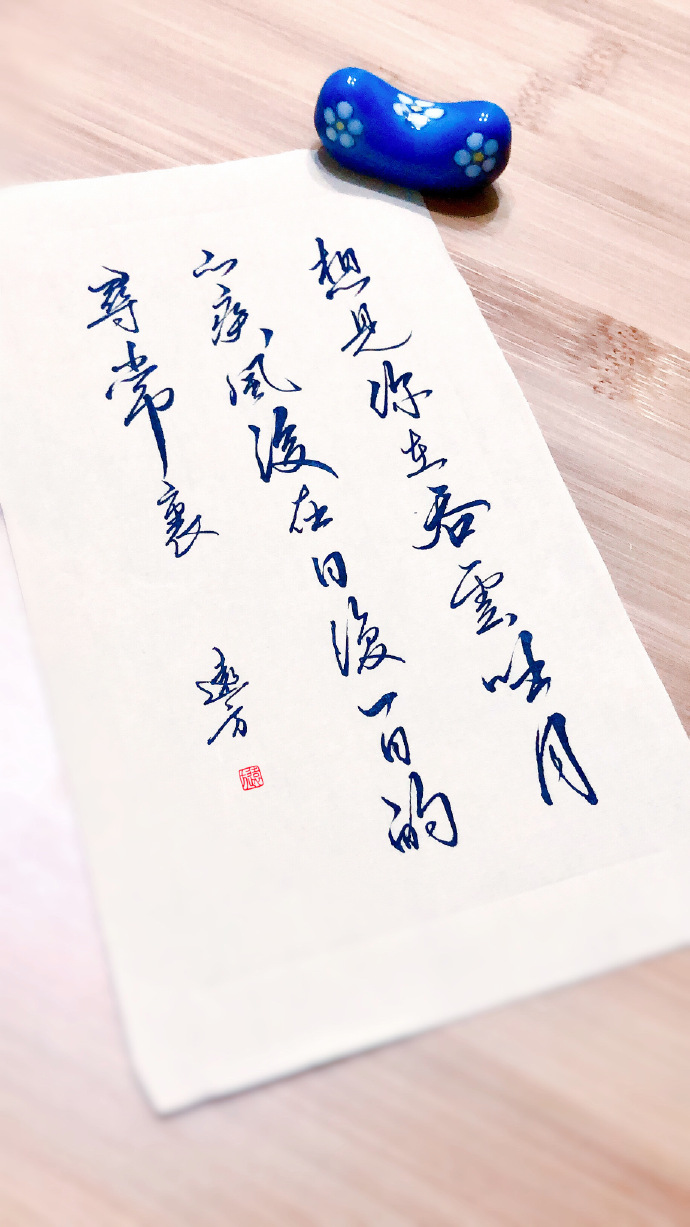 想見你在吞雲吐月
山疾風後在日復一日的
尋常裏
遠方